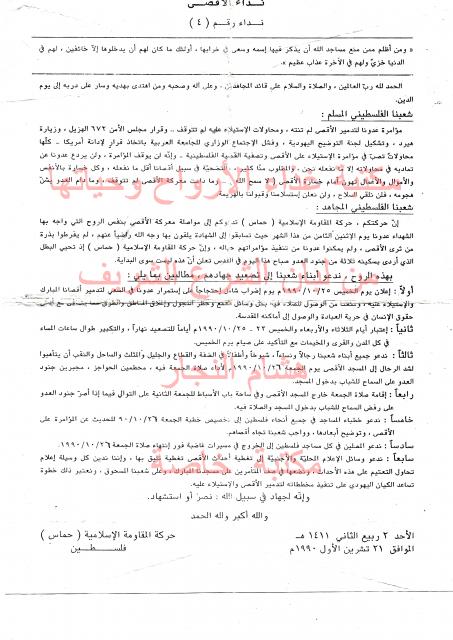 نداء الأقصى
( نداء رقم ( ٤
« ومن أظلم ممن منع مساجد الله أن يذكر فيها إسمه وسعى في خرابها ، أولئك ما كان لهم أن يدخلوها إلا خائفين ، لهم في
الدنيا خزي ولهم في الآخرة عذاب عظيم » .
الحمد لله رب العالمين ، والصلاة والسلام على قائد المجاهدين ، وعلى آله وصحبه ومن اهتدى بهديه وسار على دربه إلى يوم
الدين.
شعبنا الفلسطيني المسلم :
مؤامرة عدونا لتدمير الأقصى لم تنته ، ومحاولات الإستيلاء عليه لم تتوقف .. وقرار مجلس الأمن ٦٧٢ الهزيل ، وزيارة
هيرد ، وتشكيل لجنة التوضيح اليهودية ، وفشل الإجتماع الوزاري للجامعة العربية باتخاذ قرار لإدانة أمريكا .. كلها
محاولات تصب في مؤامرة الإستيلاء على الأقصى وتصفية القدية الفلسطينية .. وإنه لن يوقف المؤامرة ، ولن يردع عدونا عن
تماديه في محاولاته إلا ما نفعله نحن
والأموال والأعمال تهون أمام خسارة الأقصى ( لا سمح الله
هجومه ، فلن نلقي السلاح .. ولن نعلن إستسلامنا وقبولنا بالهزيمة.
شعبنا الفلسطيني المجاهد :
إن حركتكم ، حركة المقاومة الإسلامية ( حماس ) تدعوكم إلى مواصلة معركة الأقصى بنفس الروح التي واجه بها
الشهداء عدونا يوم الإثنين الثامن من هذا الشهر حيث تسابقوا إلى الشهادة يلقون بها وجه الله راضيا عنهم ، لم يفرطوا بذرة
من ثرى الأقصى ، ولم يمكنوا عدونا من تنفيذ مؤامراتهم
الذي أردى بسكينه ثلاثة من جنود العدو صباح هذا اليوم في القدس تعلن أن هذا ليس سوى البداية.
بهذه الروح ، ندعو أبناء شعبنا إلى تصعيد جهادهم ، مطالبين بما يلي :
أولاً : إعلان يوم الخميس ١٩٩٠/١٠/٢٥م يوم إضراب شامل إحتجاجاً على إستمرار عدونا في السعي لتدمير أقصانا المبارك
والإستيلاء عليه ، ومنعنا من الوصول للصلاة فيه بكل وسائل القمع وحظر التجول وإغلاق المناطق والطرق مما يتنافى مع أدنى
حقوق الإنسان في حرية العبادة والوصول إلى أماكنه المقدسة.
ثانياً : إعتبار أيام الثلاثاء والأربعاء والخميس ٢٣ - ١٩٩٠/١٠/٢٥م أياماً للتصعيد نهاراً ، والتكبير طوال ساعات المساء
في كل المدن والقرى والمخيمات مع التأكيد على صيام يوم الخميس.
ثالثاً : ندعو جميع أبناء شعبنا رجالاً ونساءً ، شيوخاً وأطفالاً في الضفة والقطاع والجليل والمثلث والساحل والنقب أن يتأهبوا
لشد الرحال إلى المسجد الأقصى يوم الجمعة ١٩٩٠/١٠/٢٦م، لأداء صلاة الجمعة فيه ، محطمين الحواجز ، مجبرين جنود
العدو على السماح للشباب بدخول المسجد.
رابعاً : إقامة صلاة الجمعة خارج المسجد الأقصى وفي ساحة باب الأسباط للجمعة الثانية على التوالي فيما إذا أصر جنود العدو
على رفض السماح للشباب بدخول المسجد والصلاة فيه.
خامساً : ندعو خطباء المساجد في جميع أنحاء فلسطين إلى تخصيص خطبة الجمعة ٩٠/١٠/٢٦ للحديث عن المؤامرة على
الأقصى ، وتوضيح أبعادها ، وواجب شعبنا تجاه أقصاهم.
سادساً : ندعو المصلين في كل مساجد فلسطين إلى الخروج في مسيرات غاضبة فور إنتهاء صلاة الجمعة ١٩٩٠/١٠/٢٦م.
سابعاً : ندعو وسائل الإعلام المحلية والأجنبية إلى تغطية أحداث الأقصى تغطية تليق بها ، وإننا ندين كل وسيلة إعلام
تحاول التعتيم على هذه الأحداث ، ونضعها في صف المتآمرين على مسجدنا المبارك ، وعلى شعبنا المسحوق ، ونعتبر ذلك خطوة
تساعد الكيان اليهودي على تنفيذ مخططاته لتدمير الأقصى والإستيلاء عليه.
وإنه لجهاد في سبيل الله : نصر أو استشهاد.
والله أكبر ولله الحمد
الأحد ٢ ربيع الثاني ١٤١١ هـ
الموافق ٢١ تشرين الأول ١٩٩٠م
حركة المقاومة الإسلامية ( حماس )
فلسطين
هشام النجار
مكتبة